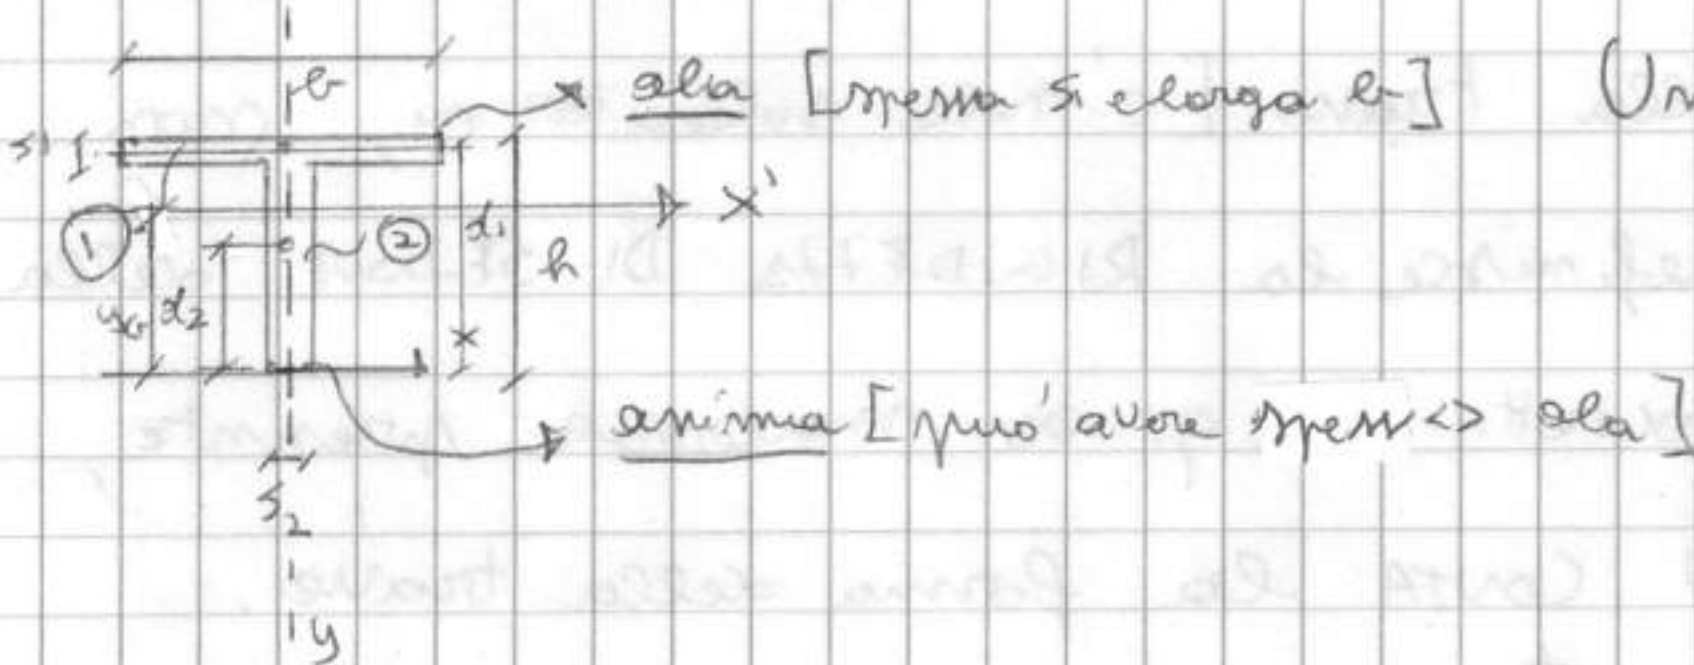 b
ala [spessa s₁ e larga b] Un
s₁
x'
① ② d₁ h
y_G d₂
x
anima [può avere spess <> ala]
s₂
y